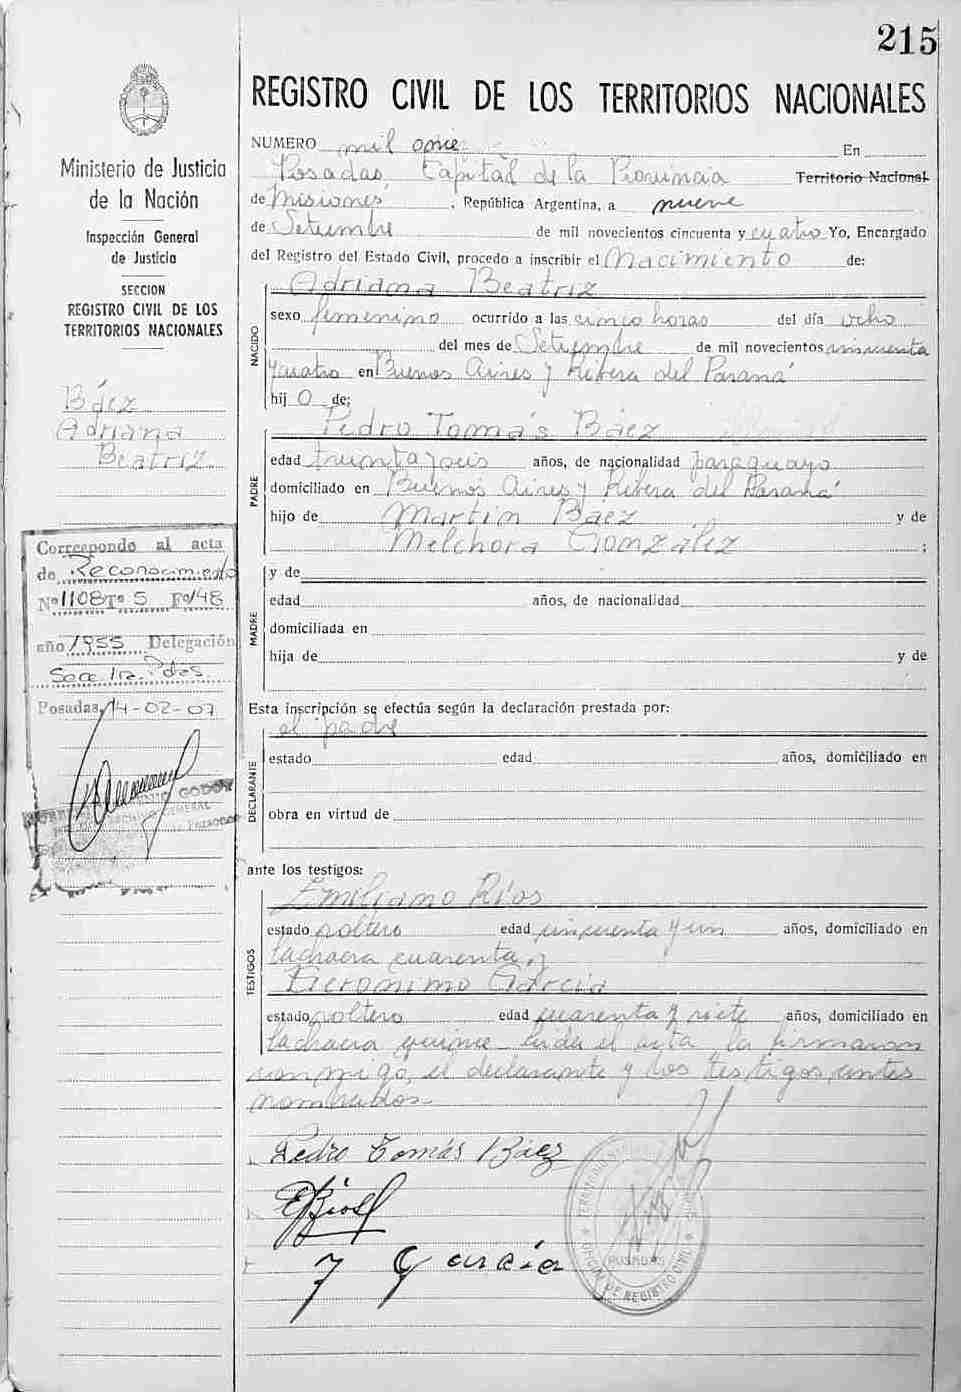 215
REGISTRO CIVIL DE LOS TERRITORIOS NACIONALES
Ministerio de Justicia
de la Nación
Inspección General
de Justicia
SECCION
REGISTRO CIVIL DE LOS
TERRITORIOS NACIONALES
Báez
Adriana
Beatriz
Corresponde al acta
de Reconocimiento
Nº 1108 Tº 5 Fº 148
año 1955 Delegación
Secc 1ra. Pdas
Posadas, 14-02-07
GODOY
NUMERO mil once En
Posadas, Capital de la Provincia Territorio Nacional
de Misiones, República Argentina, a nueve
de Setiembre de mil novecientos cincuenta y cuatro Yo, Encargado
del Registro del Estado Civil, procedo a inscribir el Nacimiento de:
NACIDO
Adriana Beatriz
sexo femenino ocurrido a las cinco horas del día ocho
del mes de Setiembre de mil novecientos cincuenta
y cuatro en Buenos Aires y Ribera del Paraná
hij o de:
PADRE
Pedro Tomás Báez
edad treinta y seis años, de nacionalidad paraguayo
domiciliado en Buenos Aires y Ribera del Paraná
hijo de Martin Báez y de
Melchora González ;
MADRE
y de
edad años, de nacionalidad
domiciliada en
hija de y de
Esta inscripción se efectúa según la declaración prestada por:
DECLARANTE
el padre
estado edad años, domiciliado en
obra en virtud de
ante los testigos:
TESTIGOS
Emiliano Ríos
estado soltero edad cincuenta y un años, domiciliado en
la chacra cuarenta, y
Gerónimo García
estado soltero edad cuarenta y siete años, domiciliado en
la chacra quince leida el acta la firmaron
conmigo, el declarante y los testigos antes
nombrados.
Pedro Tomás Báez
J García
POSADAS
OFICINA DE REGISTRO CIVIL